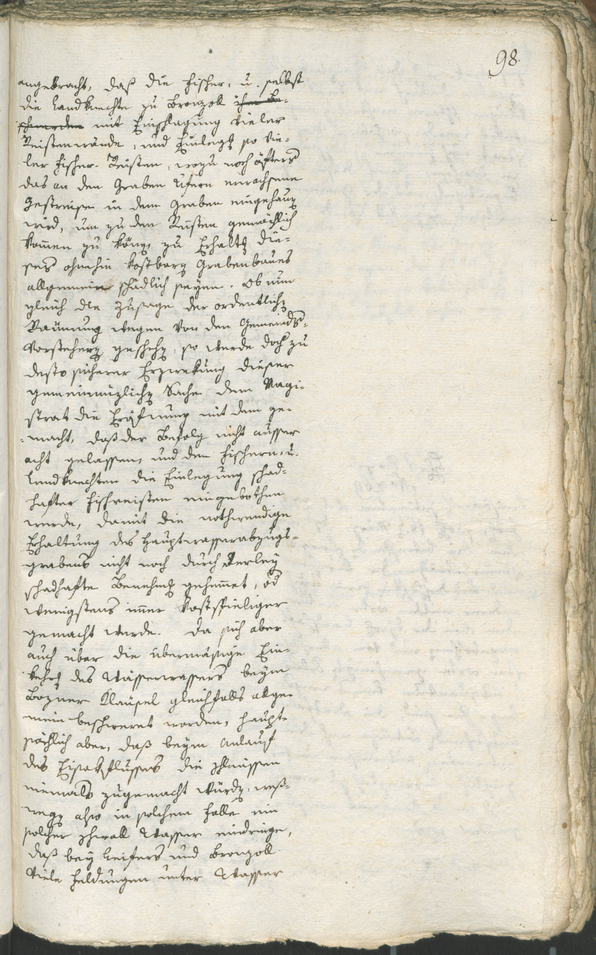 98.
angebracht, daß die Fischer, u. selbst
die Landknechte zu Bronzoll
mit Einschlagung vieler
Reistenwände, und Einlegũg so vie-
ler Fischer Reisten, wozu noch öfters
das an den Graben Ufern erwachsene
Gestreise in dem Graben eingehaut
wird, um zu den Reisten gemächlich
kom̄en zu könen, zu Erhaltũg die-
ses ohnehin kostbaren Grabenbaues
allgemein schädlich seyen. Ob nun
gleich die Zusage der ordentlichen
Raumung wegen von den Gemeinds-
Vorstehern geschehen, so werde doch zu
desto sicherer Erzweckung dieser
gemeinnüzlichen Sache dem Magi-
strat die Eröfnung mit dem ge-
macht, daß der Befolg nicht ausser
acht gelassen, und den Fischern u.
Landknechten die Einlegung schad-
hafter Fischreisten eingebothen
werde, damit die nothwendige
Erhaltung des Hauptwasserabzugs-
grabens nicht noch durch derley
schadhafte Benehmũg gehem̄et, od
wenigstens im̄er kostspieliger
gemacht werde. Da sich aber
auch über die übermäsige Ein-
kehrũg des Wässerwassers beym
Bozner Kläusel gleichfalls allge-
mein beschweret worden, haupt-
sächlich aber, daß beym Anlauf
des Eisakflusses die Schleussen
niemals zugemacht würden, weß-
wegen also in solchem Falle ein
solcher Schwall Wasser eindringe,
daß bey Leifers und Bronzoll
viele Feldungen unter Wasser